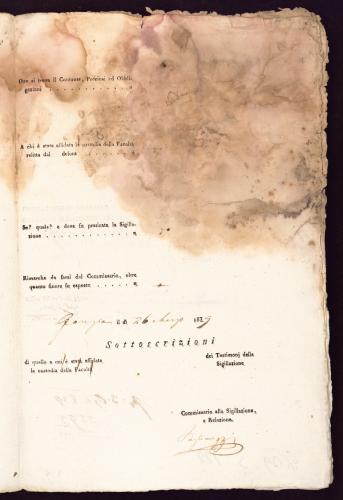 Ove si trova il Contante, Preziosi ed Obbli-
gazioni . . . . . . . . . . . . „
A chi è stata affidata la custodia della Facoltà
relitta dal defonto . . . . . . . . „
Se? quale? e dove fu praticata la Sigilla-
zione . . . . . . . . . . . . . „
Rimarche da farsi dal Commissario, oltre
quanto finora fu esposto . . . . . . „
li 26 1839
Sottoscrizioni
di quello a cui è stata affidata
la custodia della Facoltà
dei Testimonj della
Sigillazione
Commissario alla Sigillazione,
e Relazione.